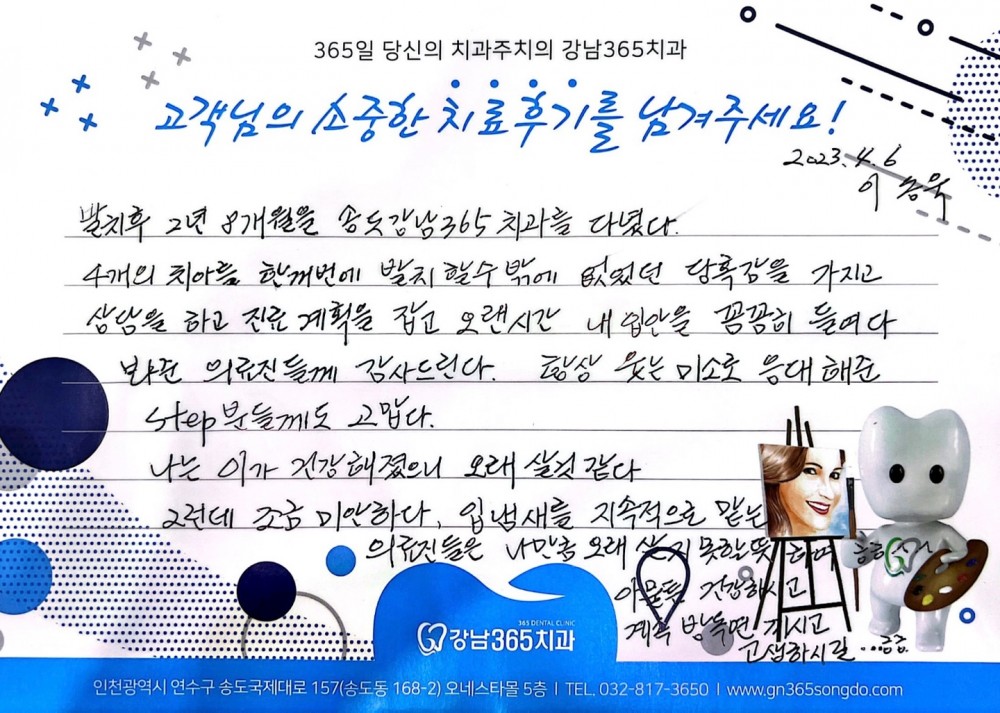 365일 당신의 치과주치의 강남365치과
고객님의 소중한 치료후기를 남겨주세요!
2023.4.6
이송욱
발치후 2년 8개월을 송도강남365치과를 다녔다.
4개의 치아를 한꺼번에 발치할수밖에 없었던 당혹감을 가지고
상담을 하고 진료계획을 잡고 오랜시간 내 입안을 꼼꼼히 들여다
봐준 의료진들께 감사드린다. 항상 웃는 미소로 응대해준
step분들께도 고맙다.
나는 이가 건강해졌으니 오래 살것 같다
그런데 조금 미안하다, 입냄새를 지속적으로 맡는
의료진들은 나만큼 오래 살지 못할듯 하여
아무튼 건강하시고
계속 방독면 끼시고
고생하시길 ...
365 DENTAL CLINIC
강남365치과
인천광역시 연수구 송도국제대로 157(송도동 168-2) 오네스타몰 5층 | TEL. 032-817-3650 | www.gn365songdo.com